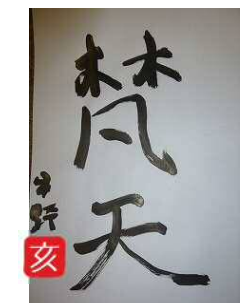 梵天
亥